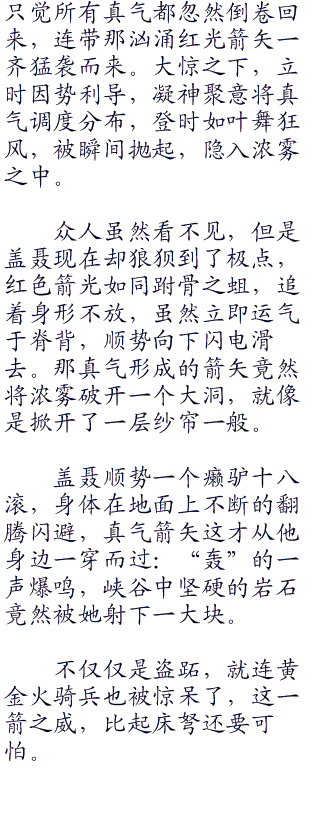 只觉所有真气都忽然倒卷回
来，连带那汹涌红光箭矢一
齐猛袭而来。大惊之下，立
时因势利导，凝神聚意将真
气调度分布，登时如叶舞狂
风，被瞬间抛起，隐入浓雾
之中。
众人虽然看不见，但是
盖聂现在却狼狈到了极点，
红色箭光如同跗骨之蛆，追
着身形不放，虽然立即运气
于脊背，顺势向下闪电滑
去。那真气形成的箭矢竟然
将浓雾破开一个大洞，就像
是掀开了一层纱帘一般。
盖聂顺势一个癞驴十八
滚，身体在地面上不断的翻
腾闪避，真气箭矢这才从他
身边一穿而过：“轰”的一
声爆鸣，峡谷中坚硬的岩石
竟然被她射下一大块。
不仅仅是盗跖，就连黄
金火骑兵也被惊呆了，这一
箭之威，比起床弩还要可
怕。